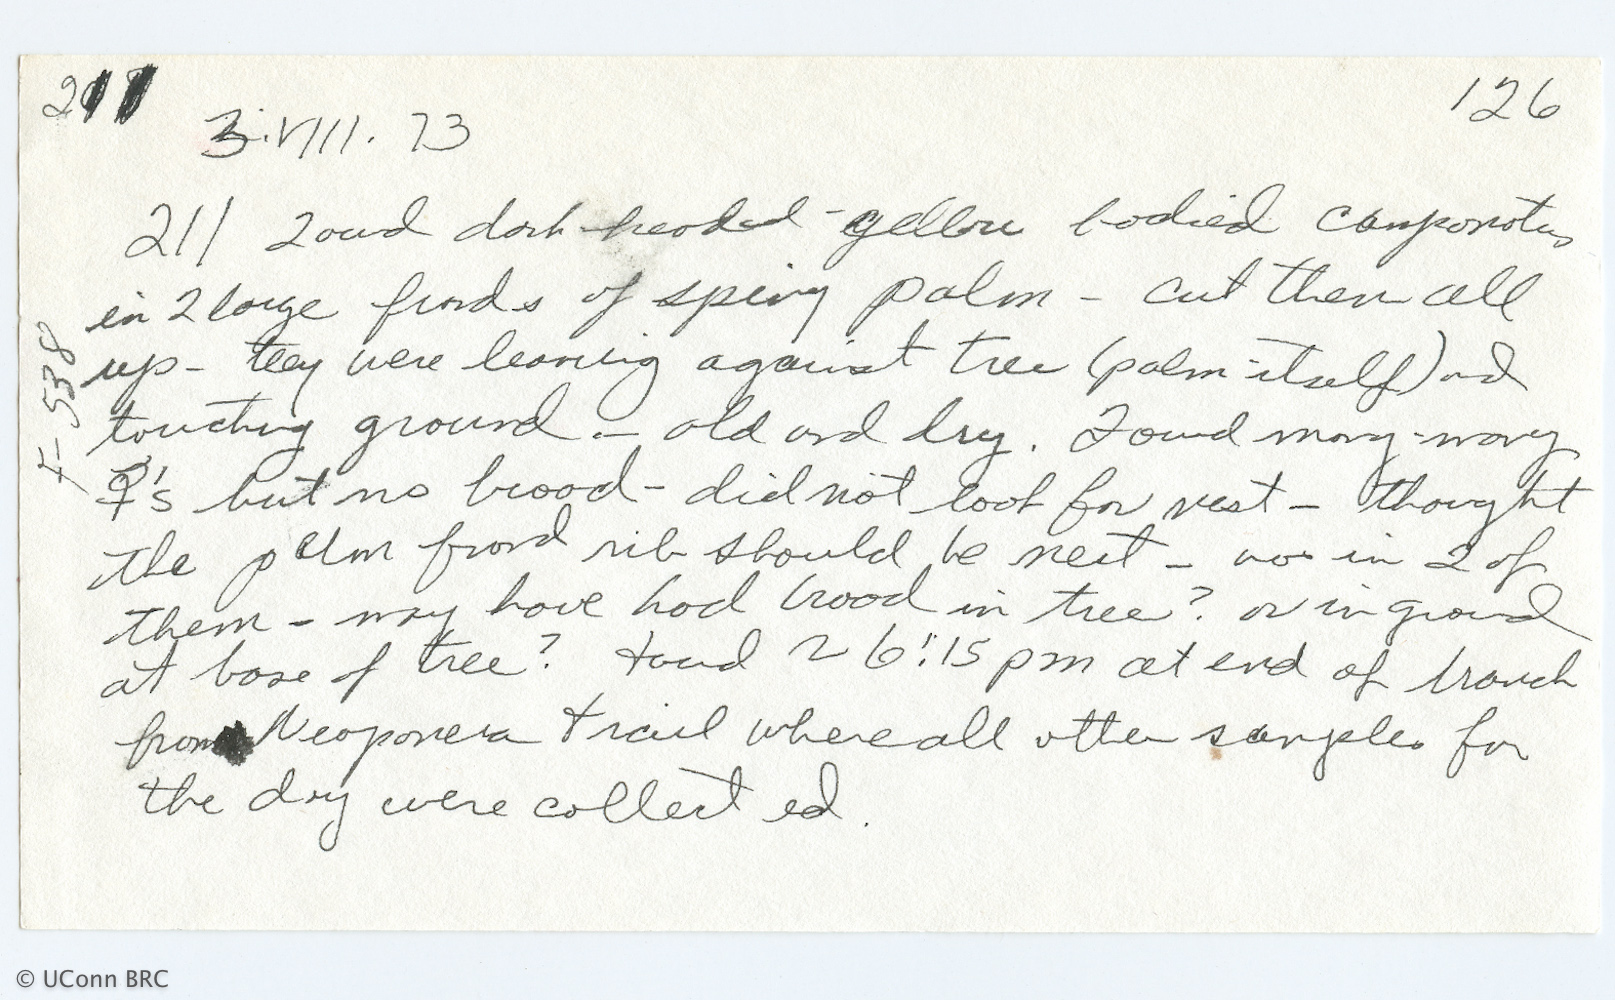 211
126
3.VIII.73
211 Found dark headed - yellow bodied camponotus
in 2 large fronds of spiny palm - cut them all
up - they were leaning against tree (palm itself) and
touching ground - old and dry. Found many-many
♀'s but no brood - did not look for nest - thought
the palm frond rib should be nest - no in 2 of
them - may have had brood in tree? or in ground
at base of tree? Found ~ 6:15 pm at end of branch
from Neoponera trail where all other samples for
the day were collect ed.
F-538
© UConn BRC